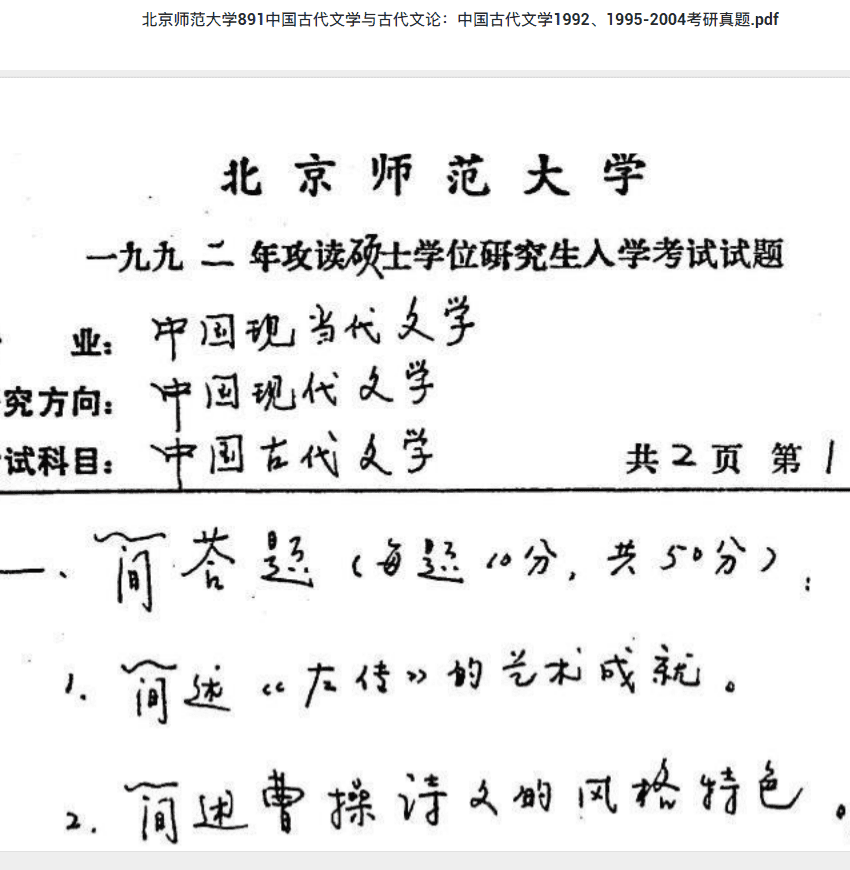 北京师范大学891中国古代文学与古代文论：中国古代文学1992、1995-2004考研真题.pdf
北京师范大学
一九九二年攻读硕士学位研究生入学考试试题
业：中国现当代文学
究方向：中国现代文学
试科目：中国古代文学 共2页 第1
一、简答题（每题10分，共50分）：
1. 简述《左传》的艺术成就。
2. 简述曹操诗文的风格特色。